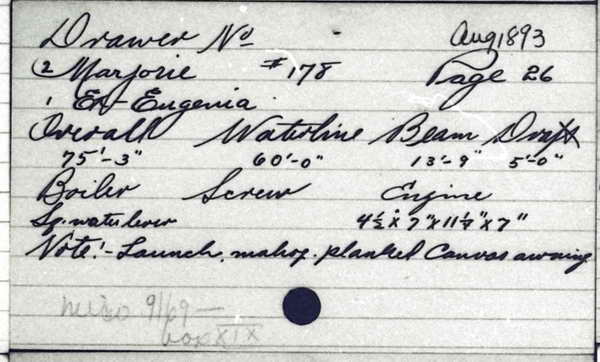 Drawer No Aug 1893
(2 Marjorie #178 Page 26
1 Ex-Eugenia
Overall Waterline Beam Draft
75'-3" 60'-0" 13'-9" 5'-0"
Boiler Screw Engine
Sq. water 4½ x 7" x 11½" x 7"
Note:- Launch, mahog. planked Canvas awning
9/69 —
box XIX